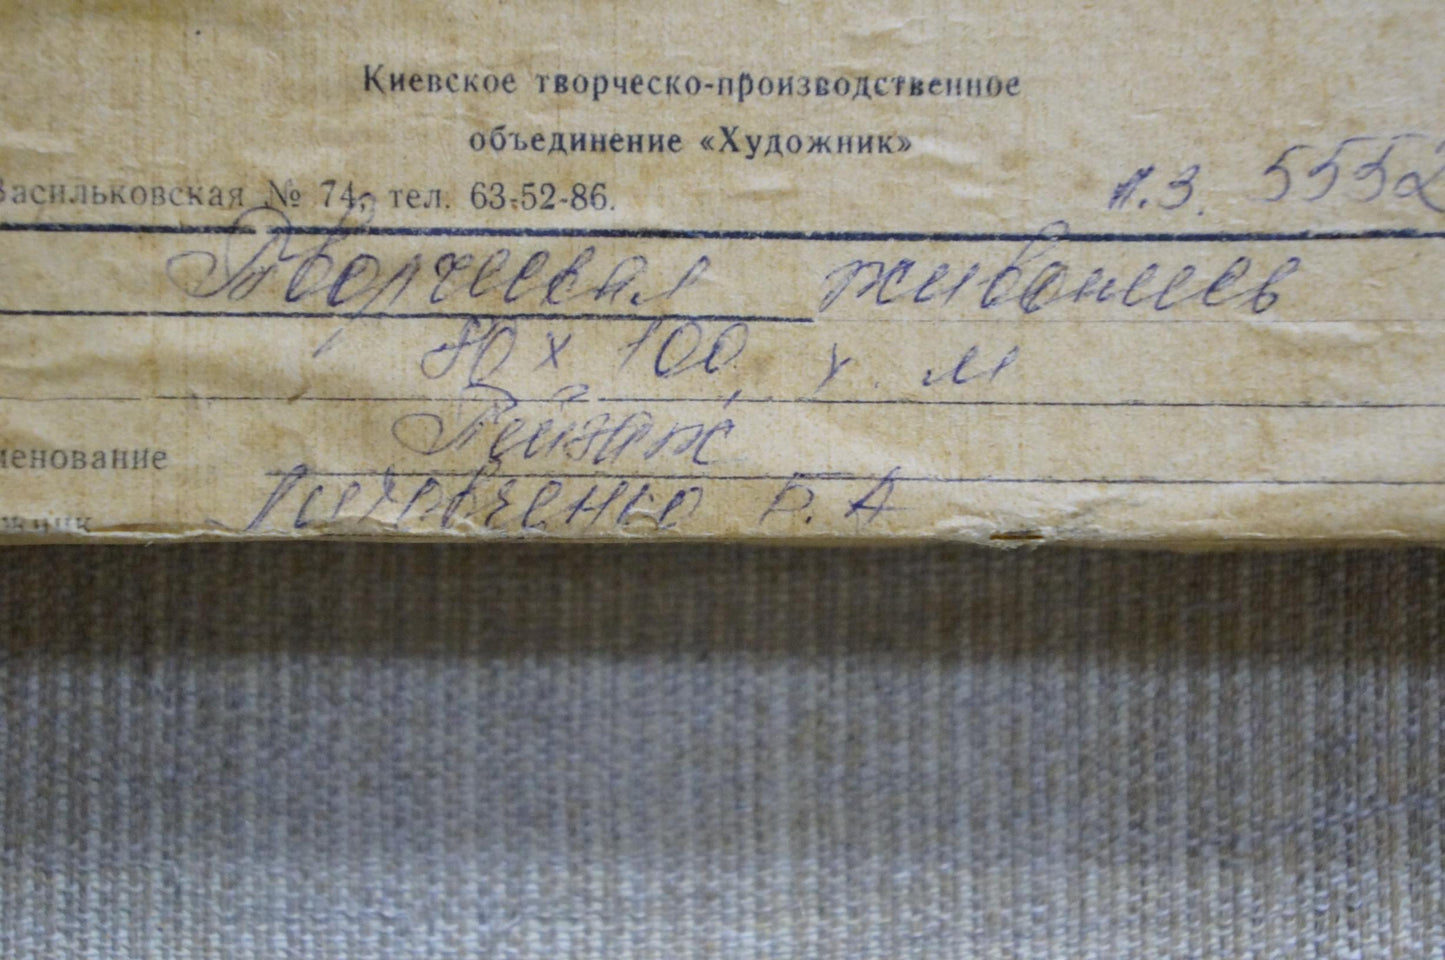 Киевское творческо-производственное
объединение «Художник»
Васильковская № 74, тел. 63-52-86.
п.з. 5552
Творческая живопись
80 х 100, х. м
Пейзаж
менование
Б. А